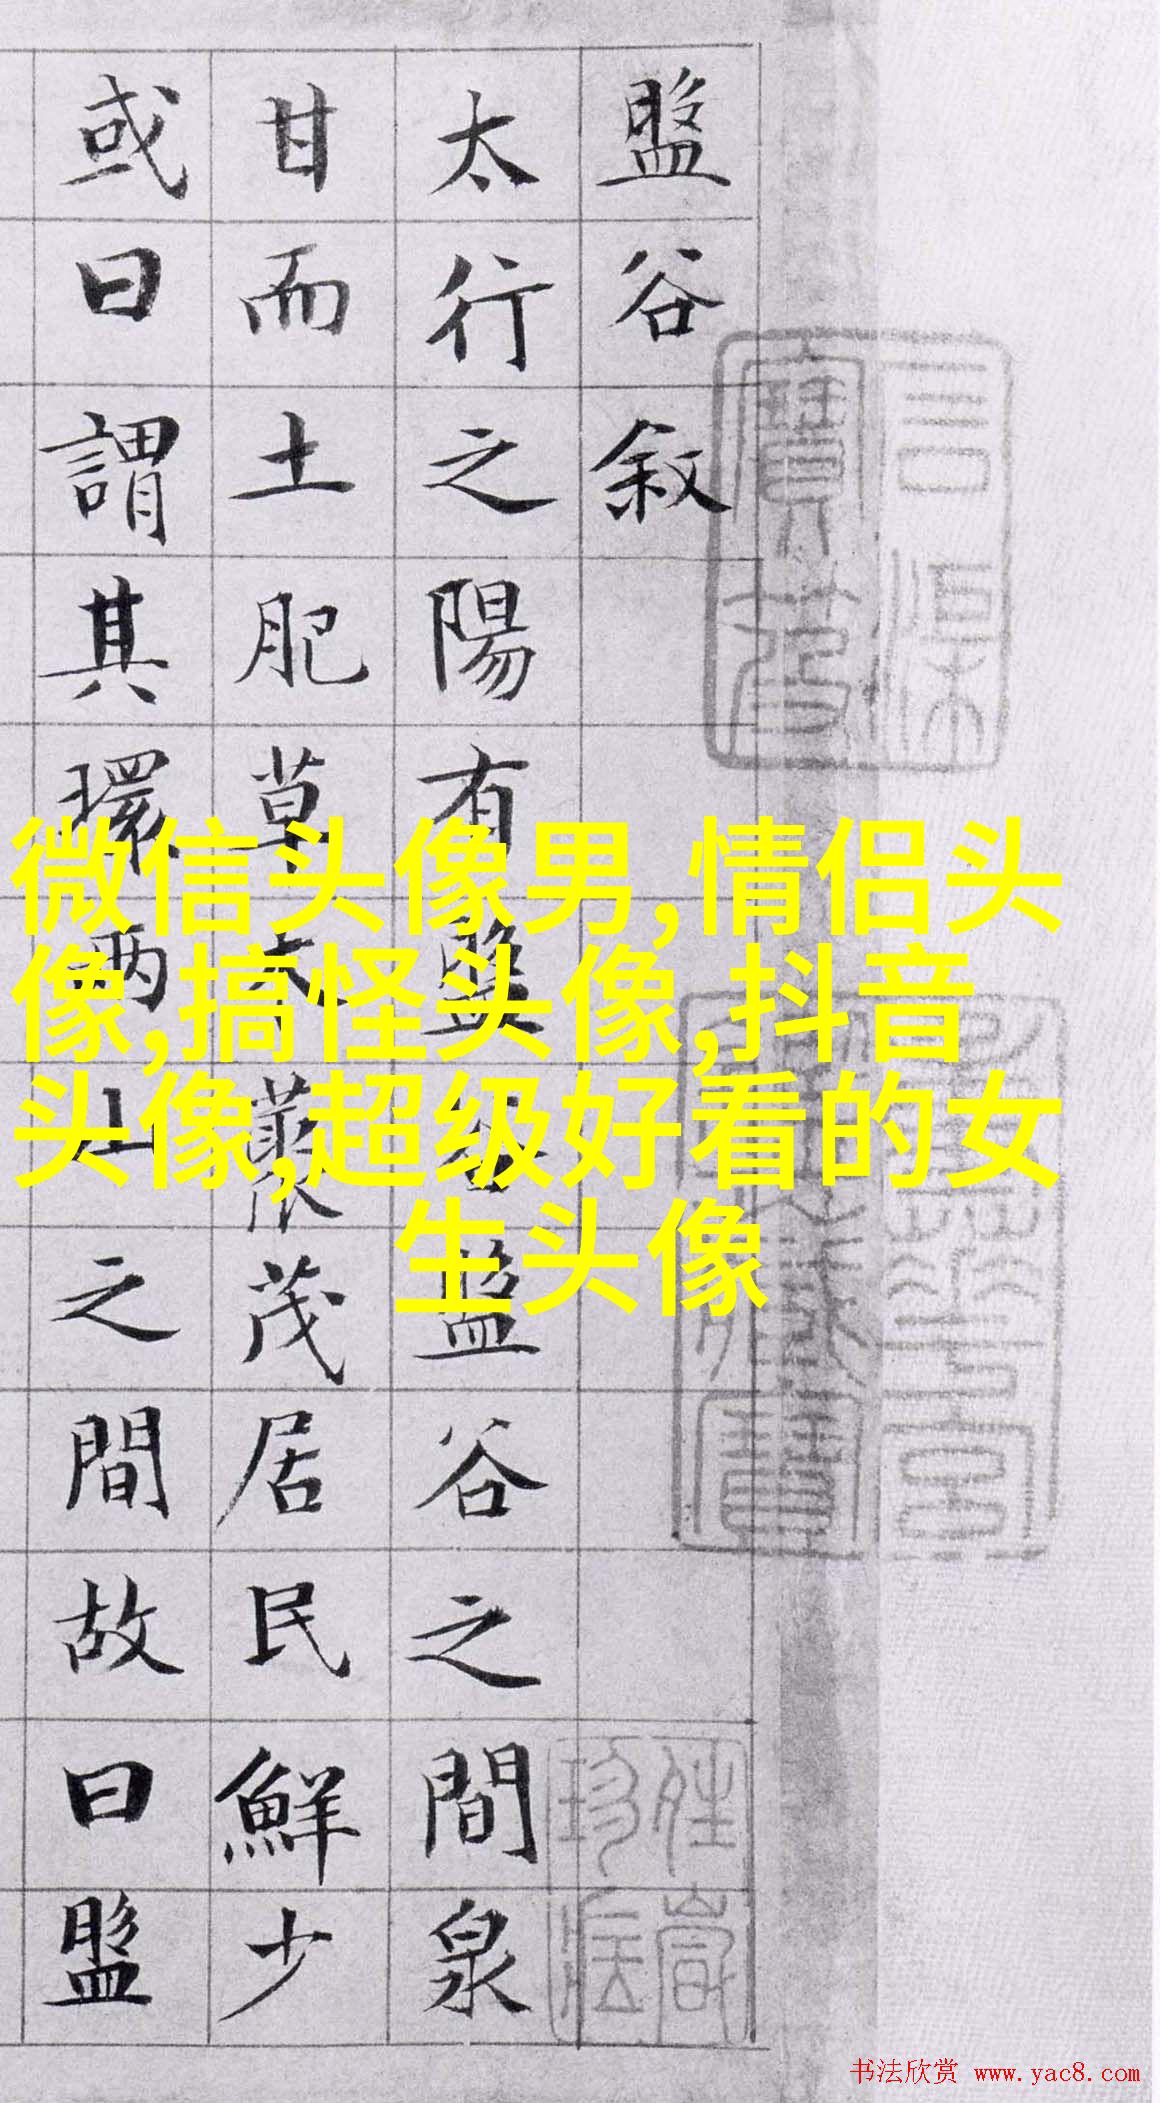 盤谷敘
太行之陽有盤谷盤谷之間泉
甘而土肥草木藂茂居民鮮少
或曰謂其環兩山之間故曰盤
微信头像男,情侣头
像,搞怪头像,抖音
头像,超级好看的女
生头像
书法欣赏 www.yac8.com